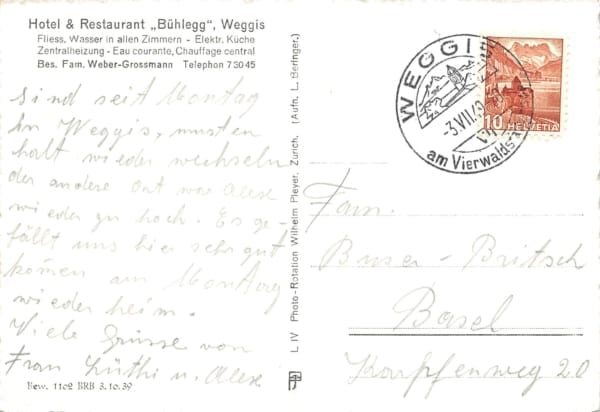 Hotel & Restaurant „Bühlegg", Weggis
Fliess. Wasser in allen Zimmern - Elektr. Küche
Zentralheizung - Eau courante, Chauffage central
Bes. Fam. Weber-Grossmann Telephon 73045
Sind seit Montag
in Weggis, mussten
halt wieder wechseln
der andere Ort war Alex
wieder zu hoch. Es ge-
fällt uns hier sehr gut
komen am Montag
wieder heim.
Viele Grüsse von
Frau Lüthi u. Alex
Bew. 1102 BRB 3.10.39
L IV Photo-Rotation Wilhelm Pleyer, Zürich. (Aufn. L. Beringer.)
WEGGIS
-3.VII.
am Vierwalds
10 HELVETIA
Fam.
Buser-Britsch
Basel
Karpfenweg 20